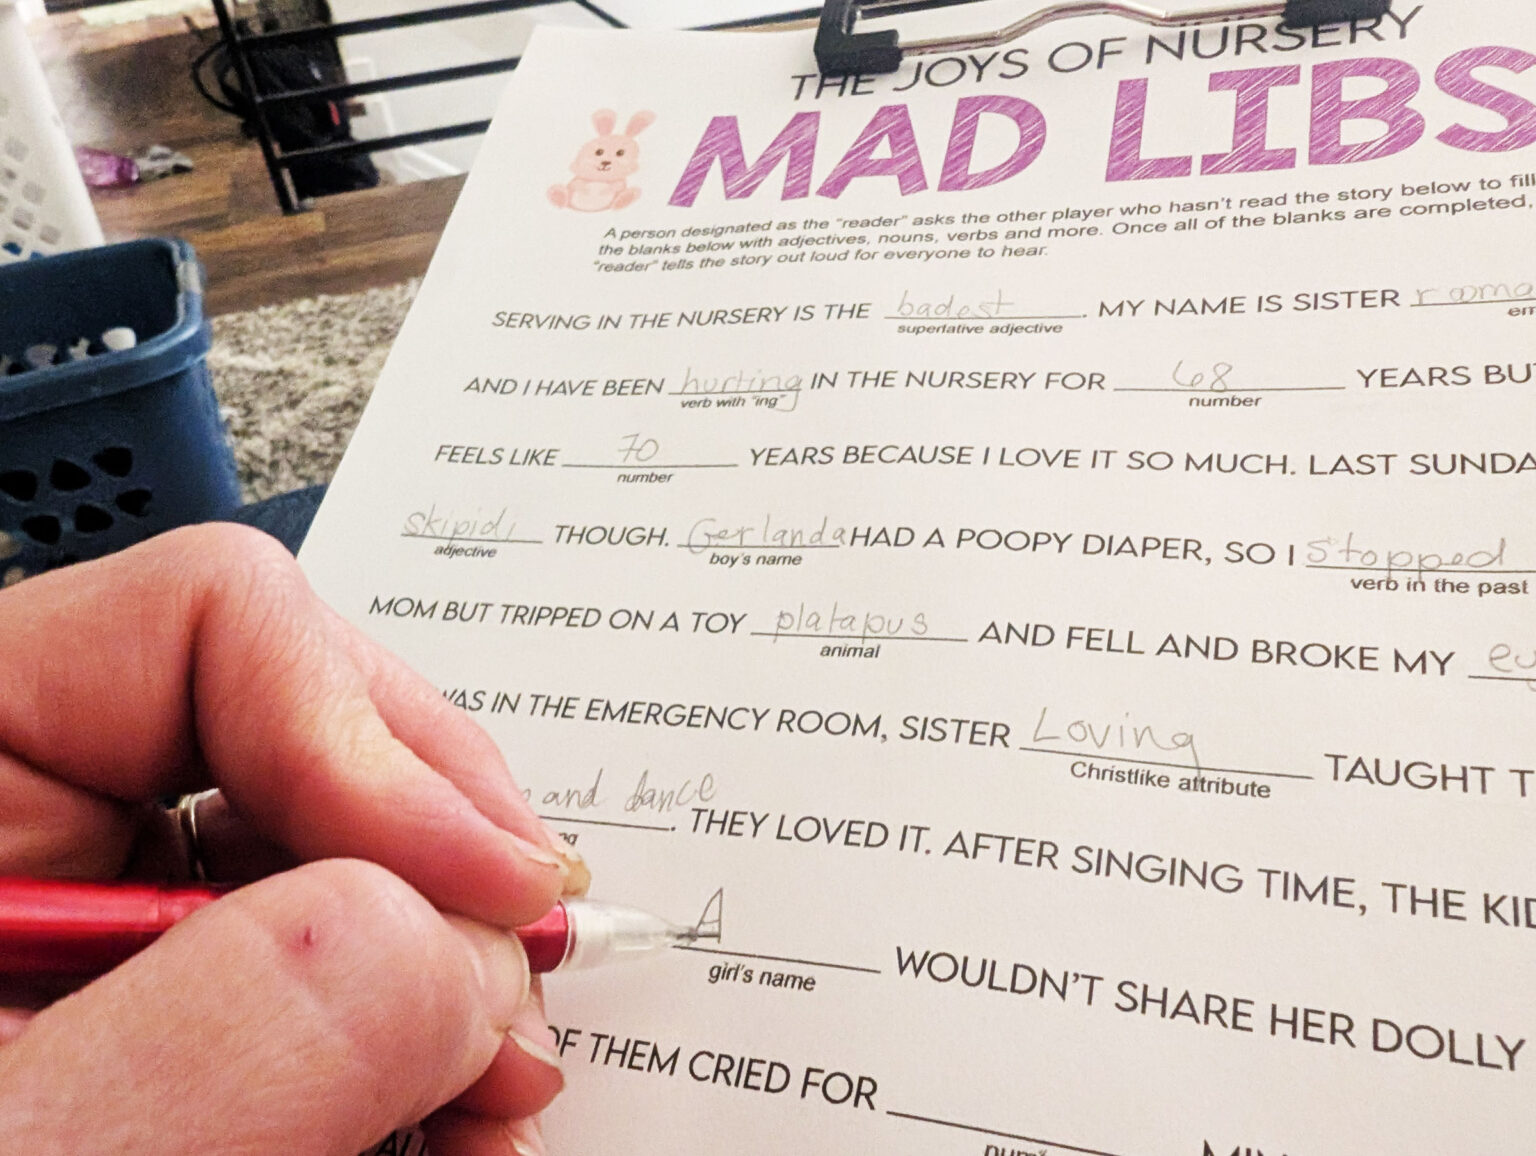 THE JOYS OF NURSERY
MAD LIBS
A person designated as the "reader" asks the other player who hasn't read the story below to fill
the blanks below with adjectives, nouns, verbs and more. Once all of the blanks are completed,
"reader" tells the story out loud for everyone to hear.
SERVING IN THE NURSERY IS THE badest. MY NAME IS SISTER
superlative adjective
AND I HAVE BEEN hurting IN THE NURSERY FOR 68 YEARS BUT
verb with "ing" number
FEELS LIKE 70 YEARS BECAUSE I LOVE IT SO MUCH. LAST SUNDA
number
skipidi THOUGH. Gerlanda HAD A POOPY DIAPER, SO I Stopped
adjective boy's name verb in the past
MOM BUT TRIPPED ON A TOY platapus AND FELL AND BROKE MY
animal
WAS IN THE EMERGENCY ROOM, SISTER Loving TAUGHT T
Christlike attribute
and dance. THEY LOVED IT. AFTER SINGING TIME, THE KID
A WOULDN'T SHARE HER DOLLY
girl's name
OF THEM CRIED FOR